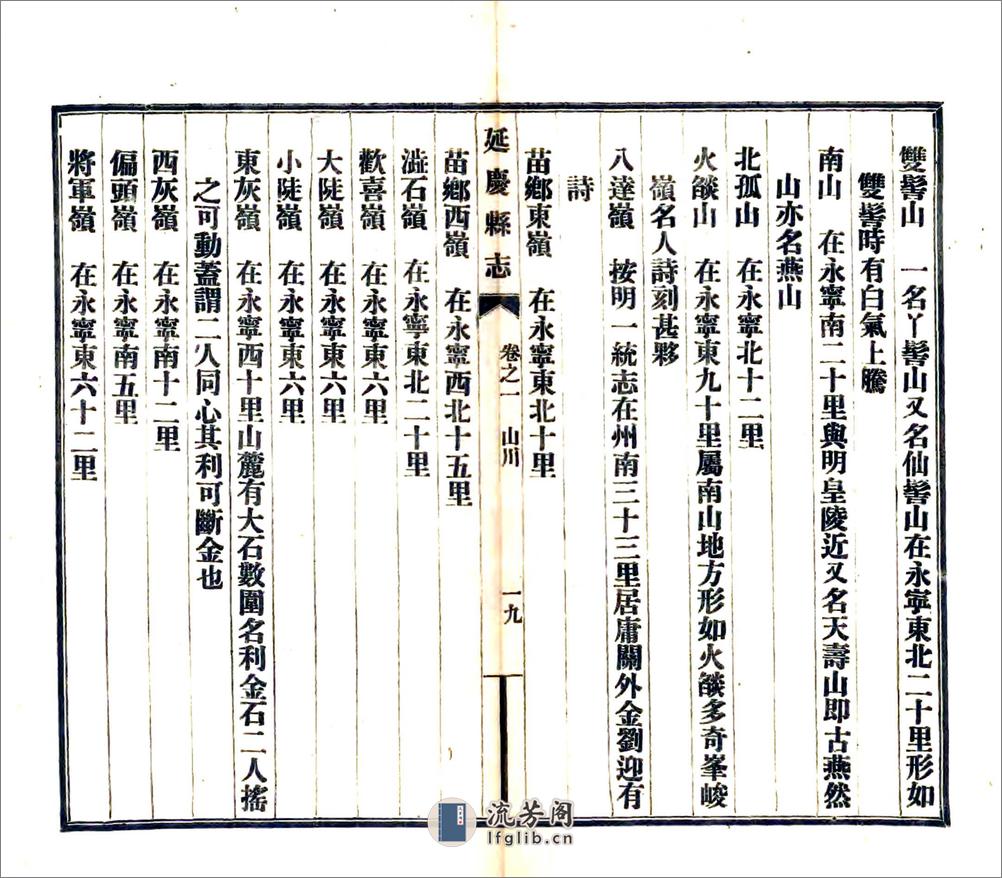 雙髻山　一名丫髻山又名仙髻山在永寧東北二十里形如
雙髻時有白氣上騰
南山　在永寧南二十里與明皇陵近又名天壽山即古燕然
山亦名燕山
北孤山　在永寧北十二里
火燄山　在永寧東九十里屬南山地方形如火燄多奇峯峻
嶺名人詩刻甚夥
八達嶺　按明一統志在州南三十三里居庸關外金劉迎有
詩
苗鄉東嶺　在永寧東北十里
延慶縣志　卷之一　山川　一九
苗鄉西嶺　在永寧西北十五里
溢石嶺　在永寧東北二十里
歡喜嶺　在永寧東六里
大陡嶺　在永寧東六里
小陡嶺　在永寧東六里
東灰嶺　在永寧西四十里山麓有大石數圍名利金石二人搖
之可動蓋謂二人同心其利可斷金也
西灰嶺　在永寧南十二里
偏頭嶺　在永寧南五里
將軍嶺　在永寧東六十二里
流芳阁
lfglib.cn